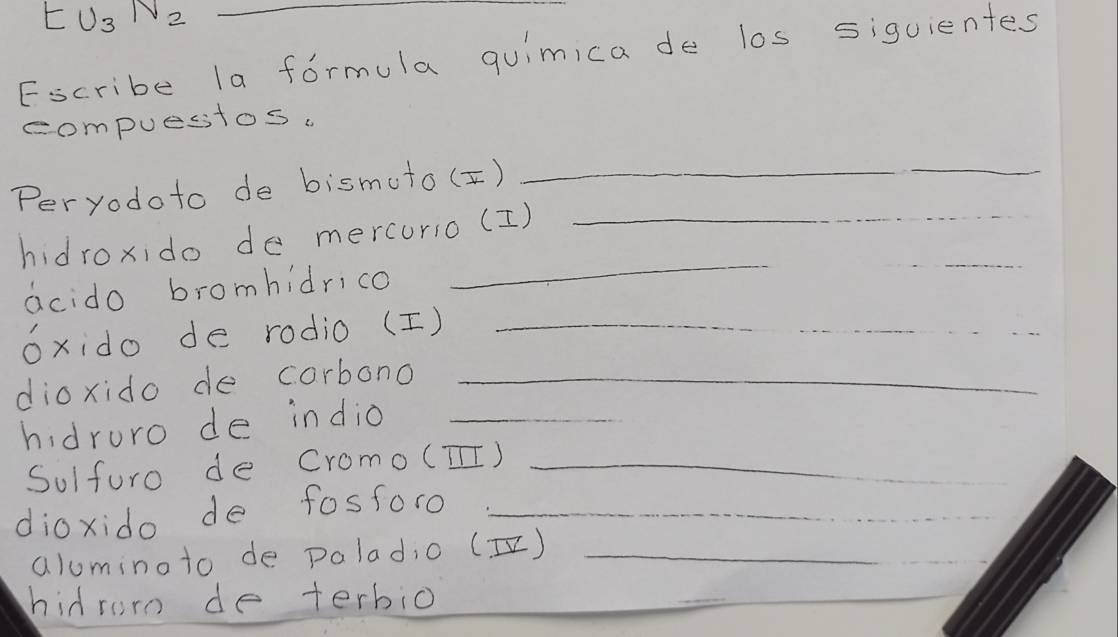 EU₃N₂
Escribe la fórmula química de los siguientes
compuestos.
Peryodato de bismuto (V)
hidroxido de mercurio (I)
ácido bromhídrico
óxido de rodio (I)
dioxido de carbono
hidruro de indio
Sulfuro de Cromo (III)
dioxido de fosforo
aluminato de paladio (IV)
hidruro de terbio